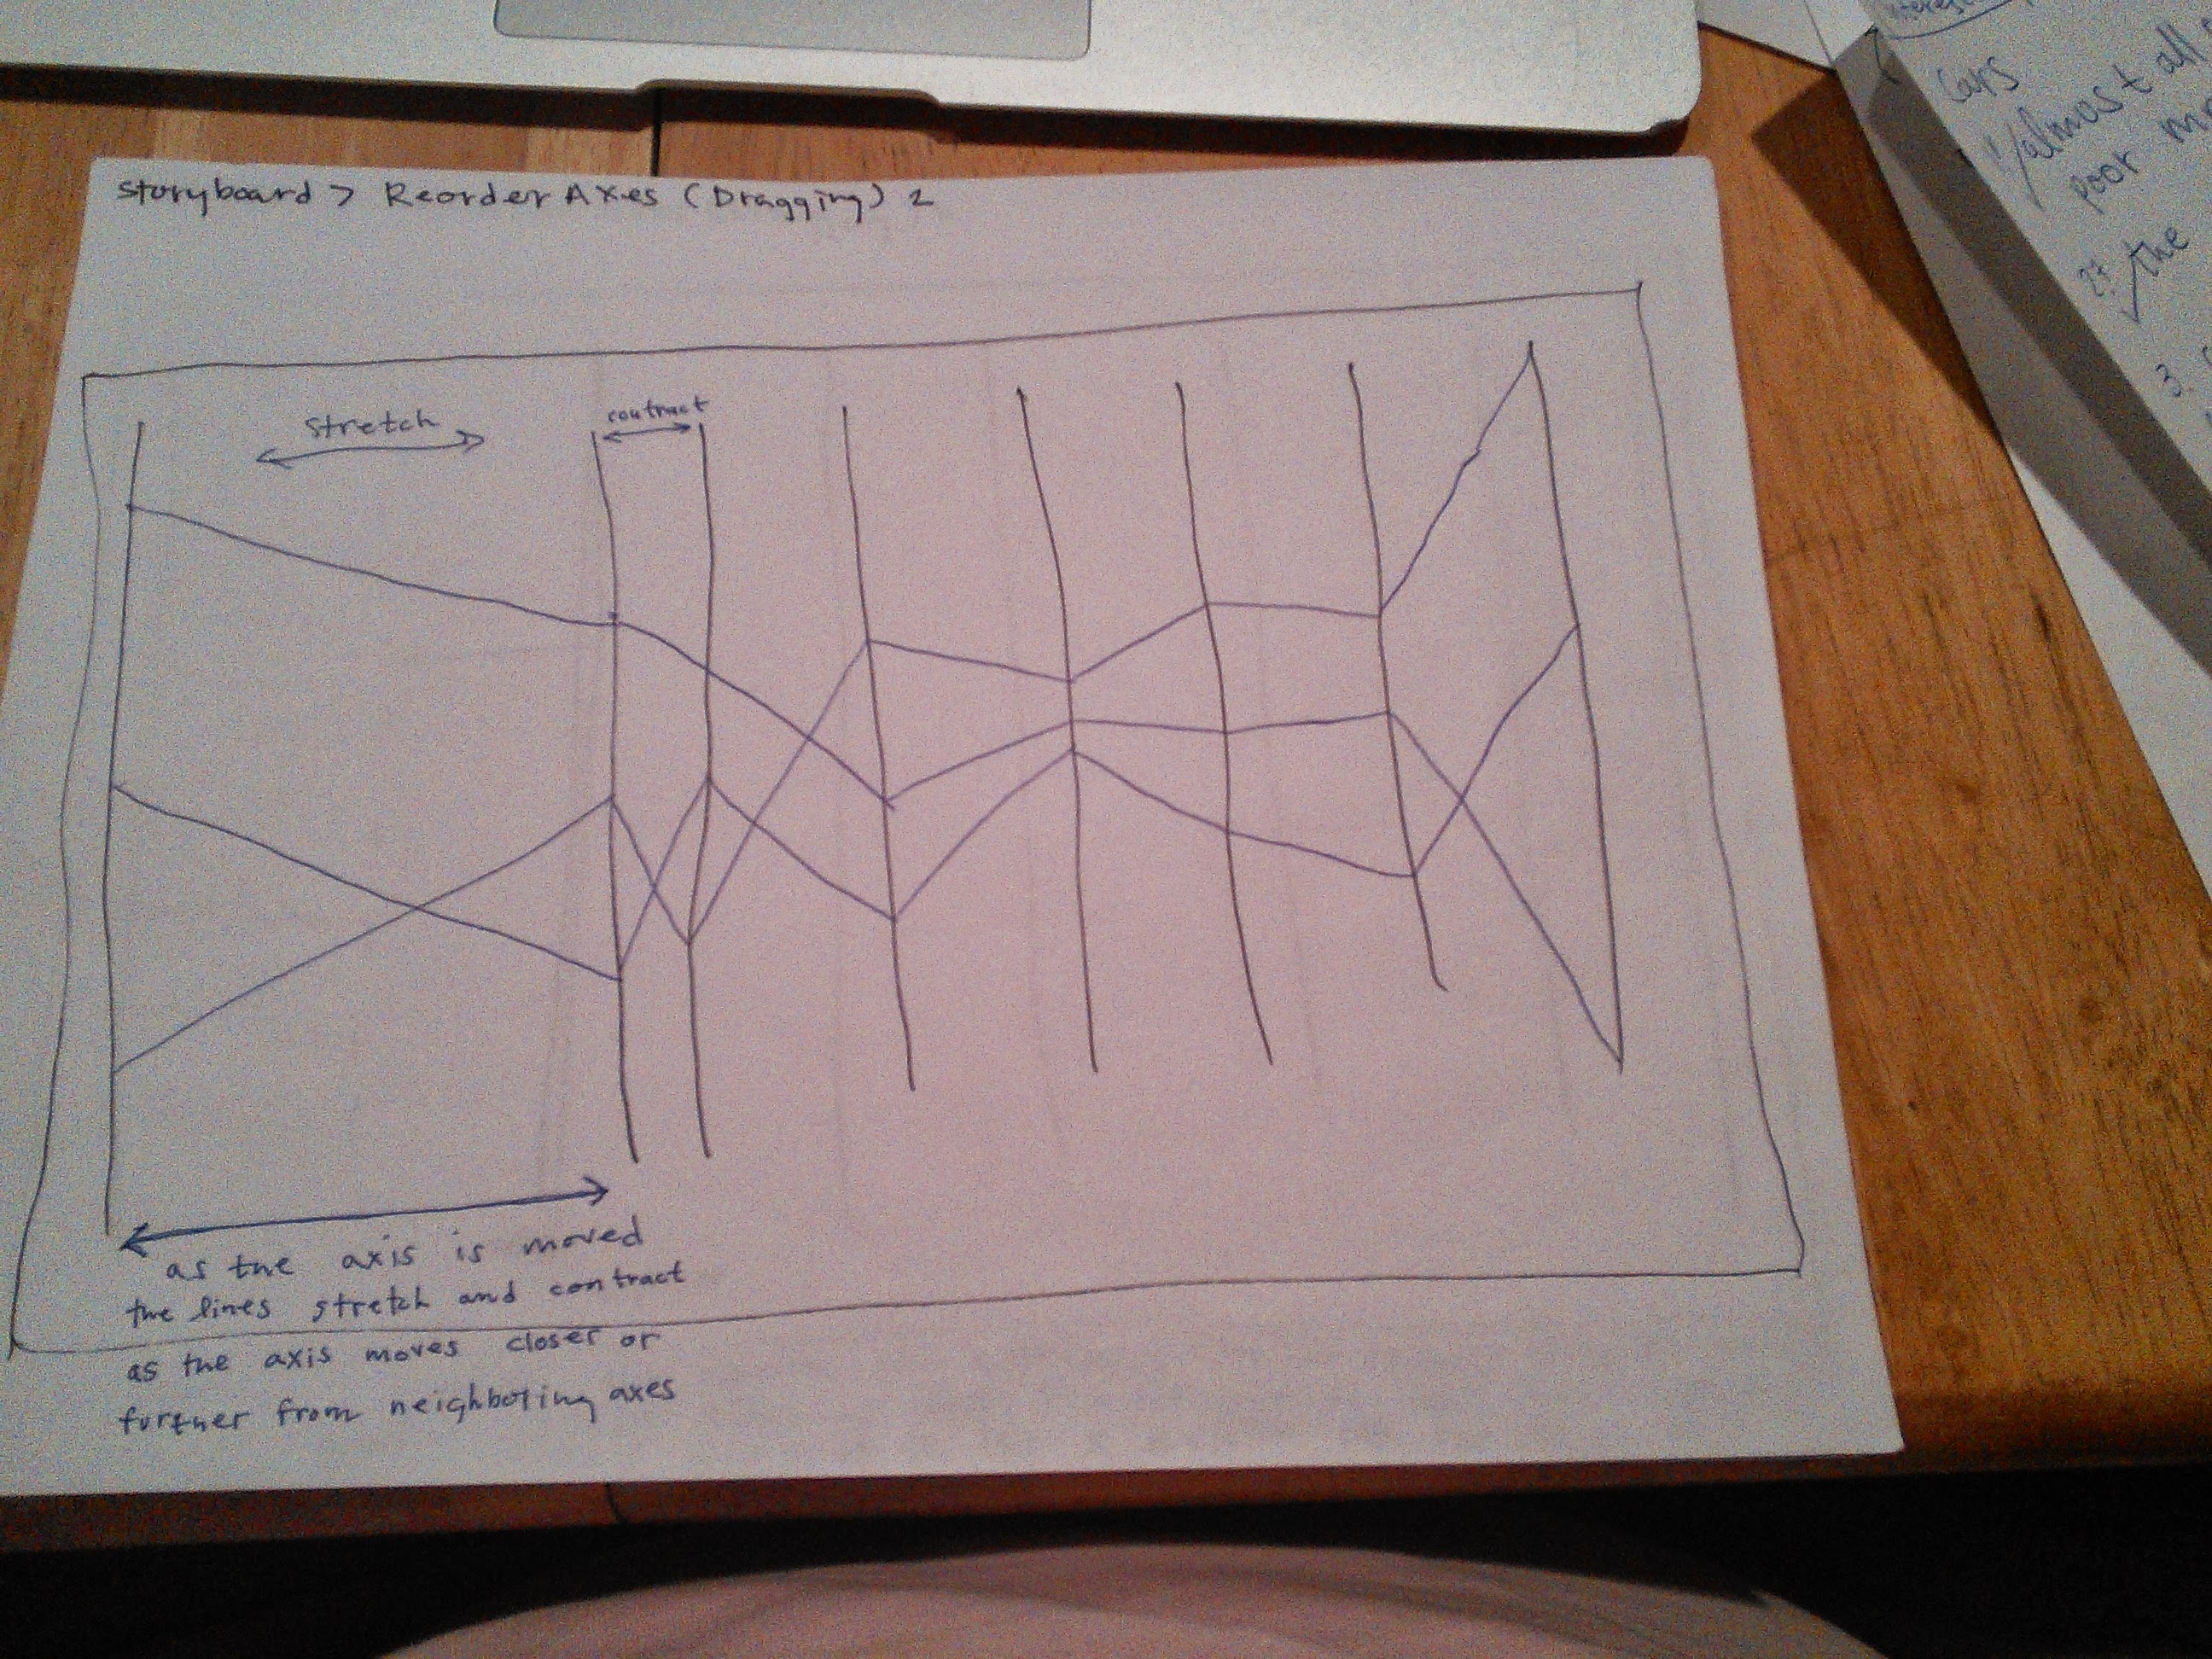 storyboard > Reorder Axes (Dragging) 2
stretch
contract
as the axis is moved
the lines stretch and contract
as the axis moves closer or
further from neighboring axes
Cars
almost all
poor
the
3.